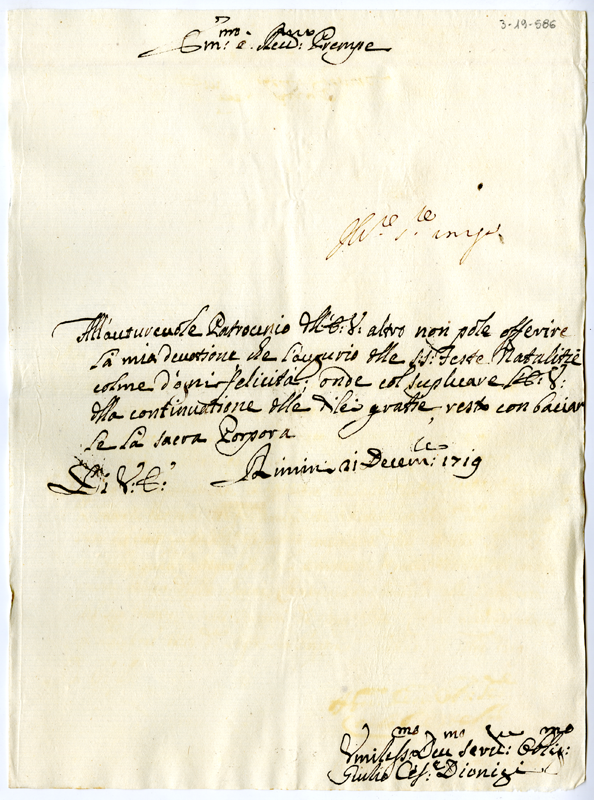 3-19-586
Em:mo e Reud:mo Prempe
All'auturevole Patrocinio dell'E: V: altro non pole offerire
La mia devotione che l'augurio delle SS: Feste Natalitie
colme d'ogni felicità; onde col suplicare l'E: V:
della continuatione delle di lei gratie, resto con baciar
le La sacra Porpora
Di V: E: Rimin 21 Decem:bre 1719
Umiliss:mo Deu:mo Serv:re Oblig:mo
Giulio Ces:e Dionigi